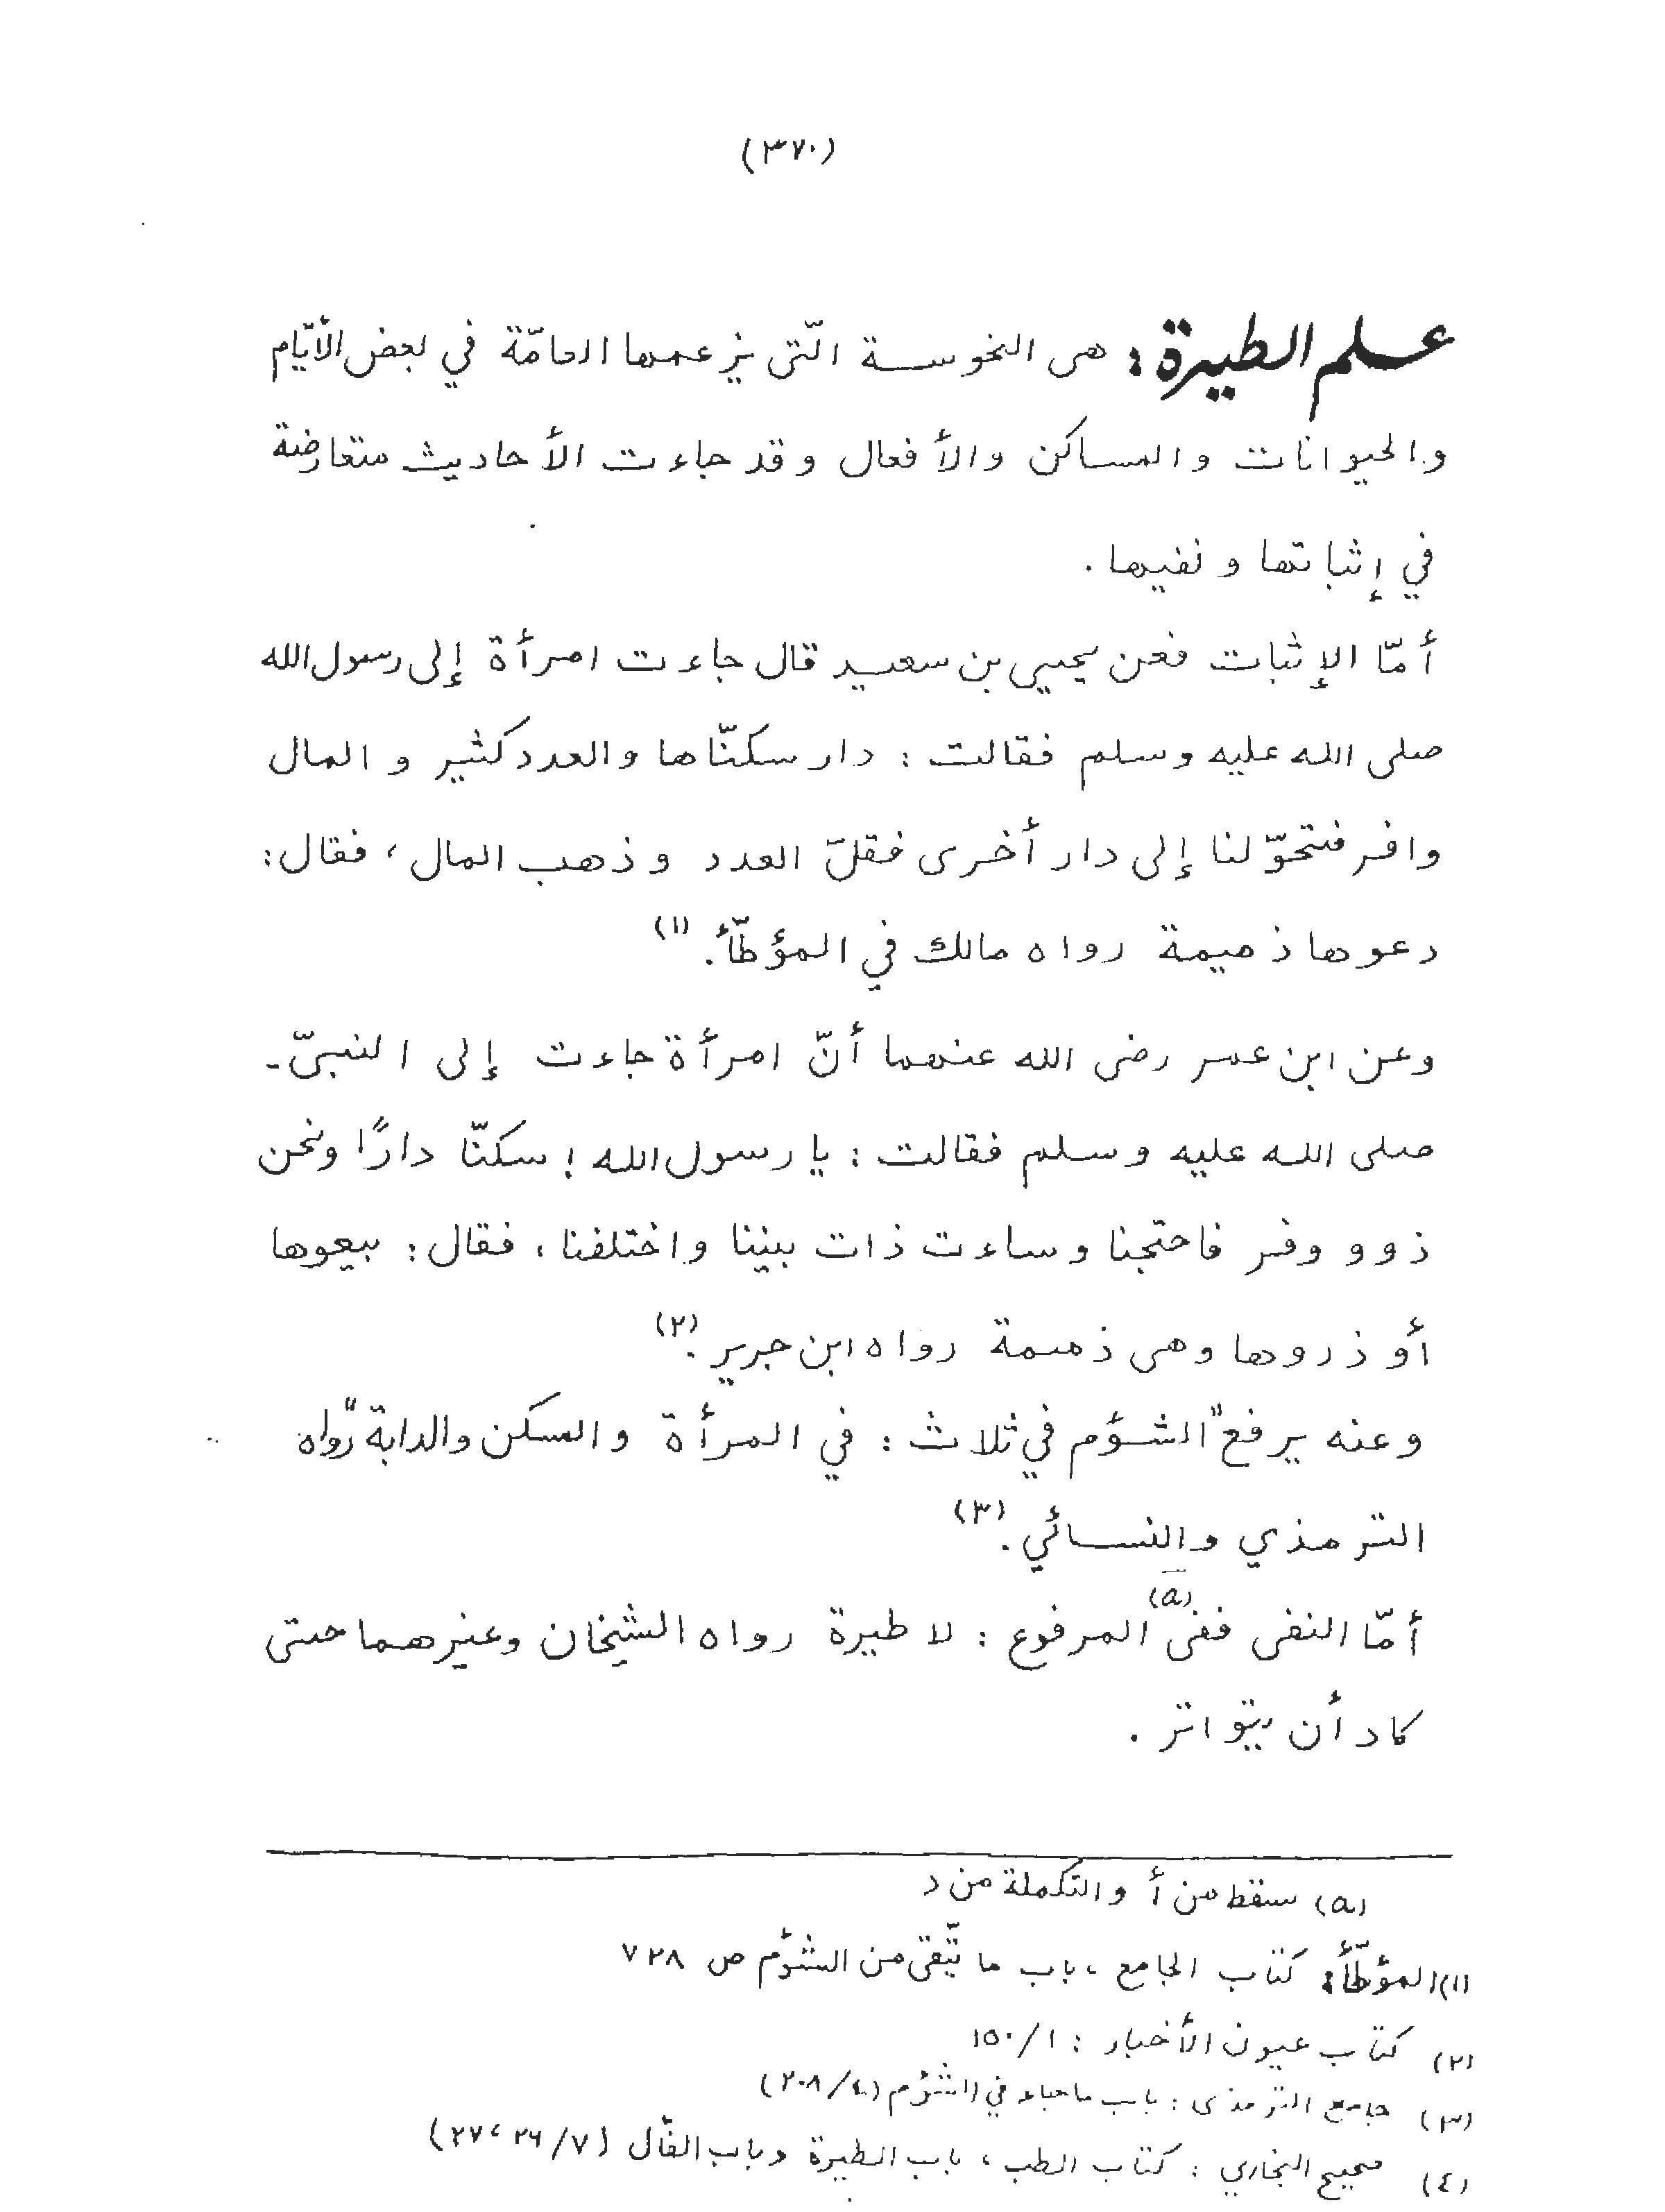 (٣٧٠)
علم الطيرة: هى النحوسة الّتى يزعمها العامّة في بعض الأيّام
والحيوانات والمساكن والأفعال وقد جاءت الأحاديث متعارضة
في إثباتها ونفيها.
أمّا الإثبات فعن يحيي بن سعيد قال جاءت امرأة إلى رسول الله
صلى الله عليه وسلم فقالت: دار سكنّاها والعدد كثير والمال
وافر فتحوّلنا إلى دار أخرى فقلّ العدد وذهب المال، فقال:
دعوها ذميمة رواه مالك في المؤطّأ.(١)
وعن ابن عمر رضى الله عنهما أنّ امرأة جاءت إلى النبىّ-
صلى الله عليه وسلم فقالت: يا رسول الله! سكنّا دارًا ونحن
ذوو وفر فاحتجنا وساءت ذات بيننا واختلفنا، فقال: بيعوها
أو ذروها وهى ذميمة رواه ابن جرير.(٢)
وعنه يرفع "الشؤم في ثلاث: في المرأة والسكن والدابة" رواه
الترمذي والنسائي.(٣)
أمّا النفى ففى(a) المرفوع: لا طيرة رواه الشيخان وغيرهما حتى
كاد أن يتواتر.
(a) سقط من أ والتكملة من د
(١) المؤطّأ: كتاب الجامع، باب ما يتّقى من الشؤم ص ٧٢٨
(٢) كتاب عيون الأخبار: ١/١٥٠
(٣) جامع الترمذى: باب ماجاء في الشؤم (٤/٢٠٨)
(٤) صحيح البخاري: كتاب الطب، باب الطيرة وباب الفأل (٧/٢٦،٢٧)